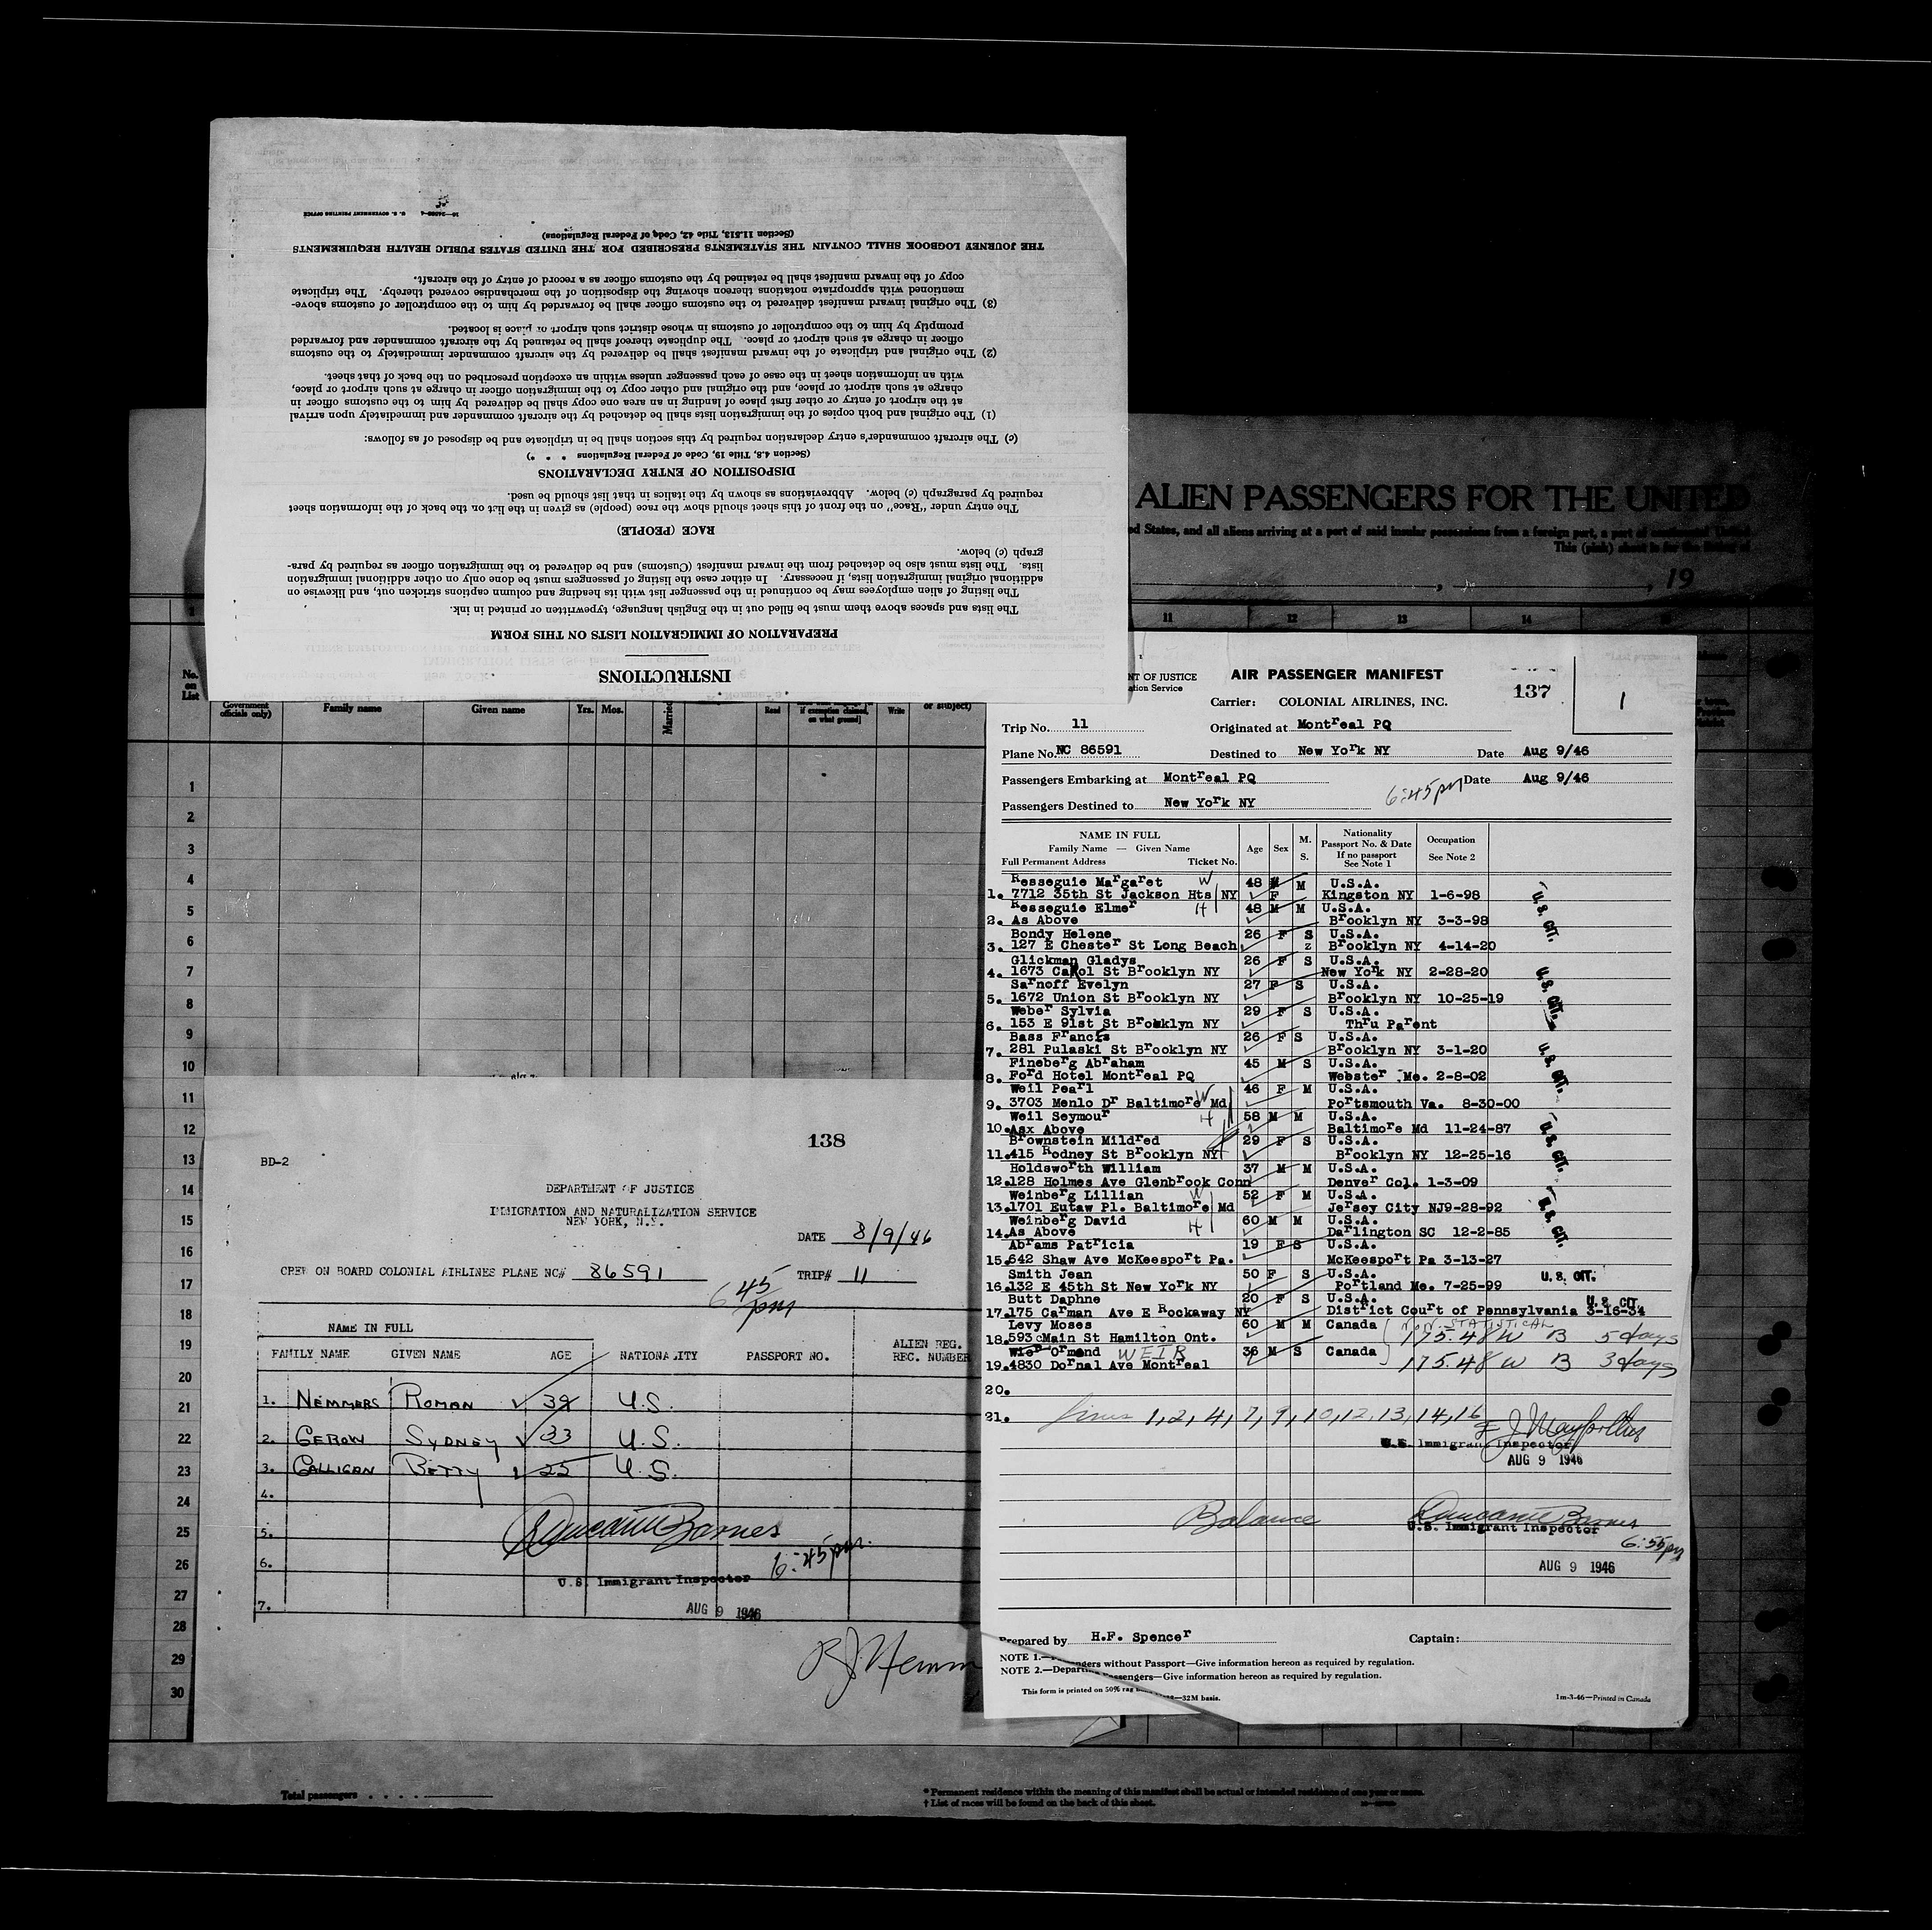 INSTRUCTIONS
PREPARATION OF IMMIGRATION LISTS ON THIS FORM
The lists and spaces above them must be filled out in the English language, typewritten or printed in ink.
The listing of alien employees may be continued in the passenger list with its heading and column captions stricken out, and likewise on
additional original immigration lists, if necessary. In either case the listing of passengers must be done only on other additional immigration
lists. The lists must also be detached from the inward manifest (Customs) and be delivered to the immigration officer as required by para-
graph (c) below.
RACE (PEOPLE)
The entry under "Race" on the front of this sheet should show the race (people) as given in the list on the back of the information sheet
required by paragraph (c) below. Abbreviations as shown by the italics in that list should be used.
DISPOSITION OF ENTRY DECLARATIONS
(Section 4.8, Title 19, Code of Federal Regulations * * *)
(c) The aircraft commander's entry declaration required by this section shall be in triplicate and be disposed of as follows:
(1) The original and both copies of the immigration lists shall be detached by the aircraft commander and immediately upon arrival
at the airport of entry or other first place of landing in an area one copy shall be delivered by him to the customs officer in
charge at such airport or place, and the original and other copy to the immigration officer in charge at such airport or place,
with an information sheet in the case of each passenger unless within an exception prescribed on the back of that sheet.
(2) The original and triplicate of the inward manifest shall be delivered by the aircraft commander immediately to the customs
officer in charge at such airport or place. The duplicate thereof shall be retained by the aircraft commander and forwarded
promptly by him to the comptroller of customs in whose district such airport or place is located.
(3) The original inward manifest delivered to the customs officer shall be forwarded by him to the comptroller of customs above-
mentioned with appropriate notations thereon showing the disposition of the merchandise covered thereby. The triplicate
copy of the inward manifest shall be retained by the customs officer as a record of entry of the aircraft.
THE JOURNEY LOGBOOK SHALL CONTAIN THE STATEMENTS PRESCRIBED FOR THE UNITED STATES PUBLIC HEALTH REQUIREMENTS
(Section 11.513, Title 42, Code of Federal Regulations)
U. S. GOVERNMENT PRINTING OFFICE
ALIEN PASSENGERS FOR THE UNITED
ed States, and all aliens arriving at a port of said insular possessions from a foreign port, a port of continental United
This (pink) sheet is for the listing of
, 19
11 12 13 14 15
No. on List
Government officials only)
Family name Given name Yrs. Mos. Married Read if exemption claimed, on what ground] Write or subject)
1
2
3
4
5
6
7
8
9
10
11
12
13
14
15
16
17
18
19
20
21
22
23
24
25
26
27
28
29
30
Total passengers . . . .
* Permanent residence within the meaning of this manifest shall be actual or intended residence of one year or more.
† List of races will be found on the back of this sheet.
138
BD-2
DEPARTMENT OF JUSTICE
IMMIGRATION AND NATURALIZATION SERVICE
NEW YORK, N.Y.
DATE 8/9/46
CREW ON BOARD COLONIAL AIRLINES PLANE NC# 86591 TRIP# 11
6 45 pm
NAME IN FULL
FAMILY NAME GIVEN NAME AGE NATIONALITY PASSPORT NO. ALIEN REG. REC. NUMBER
1. NEMMERS ROMAN 39 U.S.
2. GEROW SYDNEY 33 U.S.
3. GALLIGAN BETTY 25 U.S.
4.
5.
6. 6:45 pm.
U.S. Immigrant Inspector
7. AUG 9 1946
NT OF JUSTICE
ation Service
AIR PASSENGER MANIFEST
137
1
Carrier: COLONIAL AIRLINES, INC.
Trip No. 11 Originated at Montreal PQ
Plane No. NC 86591 Destined to New York NY Date Aug 9/46
Passengers Embarking at Montreal PQ Date Aug 9/46
6:45 pm
Passengers Destined to New York NY
NAME IN FULL
Family Name — Given Name
Full Permanent Address Ticket No.
Age Sex M. S.
Nationality Passport No. & Date If no passport See Note 1
Occupation See Note 2
Resseguie Margaret W 48 M U.S.A.
1. 7712 35th St Jackson Hts NY F Kingston NY 1-6-98
Resseguie Elmer H 48 M M U.S.A.
2. As Above Brooklyn NY 3-3-98
Bondy Helene 26 F S U.S.A.
3. 127 E Chester St Long Beach z Brooklyn NY 4-14-20
Glickman Gladys 26 F S U.S.A.
4. 1673 Carol St Brooklyn NY New York NY 2-28-20
Sarnoff Evelyn 27 F S U.S.A.
5. 1672 Union St Brooklyn NY Brooklyn NY 10-25-19
Weber Sylvia 29 F S U.S.A.
6. 153 E 91st St Brooklyn NY Thru Parent
Bass Francis 26 F S U.S.A.
7. 281 Pulaski St Brooklyn NY Brooklyn NY 3-1-20
Fineberg Abraham 45 M S U.S.A.
8. Ford Hotel Montreal PQ Webster Me. 2-8-02
Weil Pearl W 46 F M U.S.A.
9. 3703 Menlo Dr Baltimore Md Portsmouth Va. 8-30-00
Weil Seymour H 58 M M U.S.A.
10. Asx Above Baltimore Md 11-24-87
Brownstein Mildred 29 F S U.S.A.
11. 415 Rodney St Brooklyn NY Brooklyn NY 12-25-16
Holdsworth William 37 M M U.S.A.
12. 128 Holmes Ave Glenbrook Conn Denver Col. 1-3-09
Weinberg Lillian W 52 F M U.S.A.
13. 1701 Eutaw Pl. Baltimore Md Jersey City NJ 9-28-92
Weinberg David H 60 M M U.S.A.
14. As Above Darlington SC 12-2-85
Abrams Patricia 19 F S U.S.A.
15. 642 Shaw Ave McKeesport Pa. McKeesport Pa 3-13-27
Smith Jean 50 F S U.S.A.
16. 132 E 45th St New York NY Portland Me. 7-25-99
Butt Daphne 20 F S U.S.A.
17. 175 Carman Ave E Rockaway NY District Court of Pennsylvania 3-16-34
Levy Moses 60 M M Canada NON STATISTICAL
18. 593 cMain St Hamilton Ont. 175.48 W B 5 days
Wier Ormond WEIR 36 M S Canada
19. 4830 Dornal Ave Montreal 175.48 W B 3 days
U.S. CIT.
U.S. CIT.
U.S. CIT.
U.S. CIT.
U.S. CIT.
U.S. CIT.
U.S. CIT.
20.
21. lines 1, 2, 4, 7, 9, 10, 12, 13, 14, 16
U.S. Immigrant Inspector
AUG 9 1946
Balance
U.S. Immigrant Inspector
6:55 pm
AUG 9 1946
Prepared by H.F. Spencer Captain:
NOTE 1.— ngers without Passport—Give information hereon as required by regulation.
NOTE 2.—Departing Passengers—Give information hereon as required by regulation.
This form is printed on 50% rag —32M basis. 1m-3-46—Printed in Canada